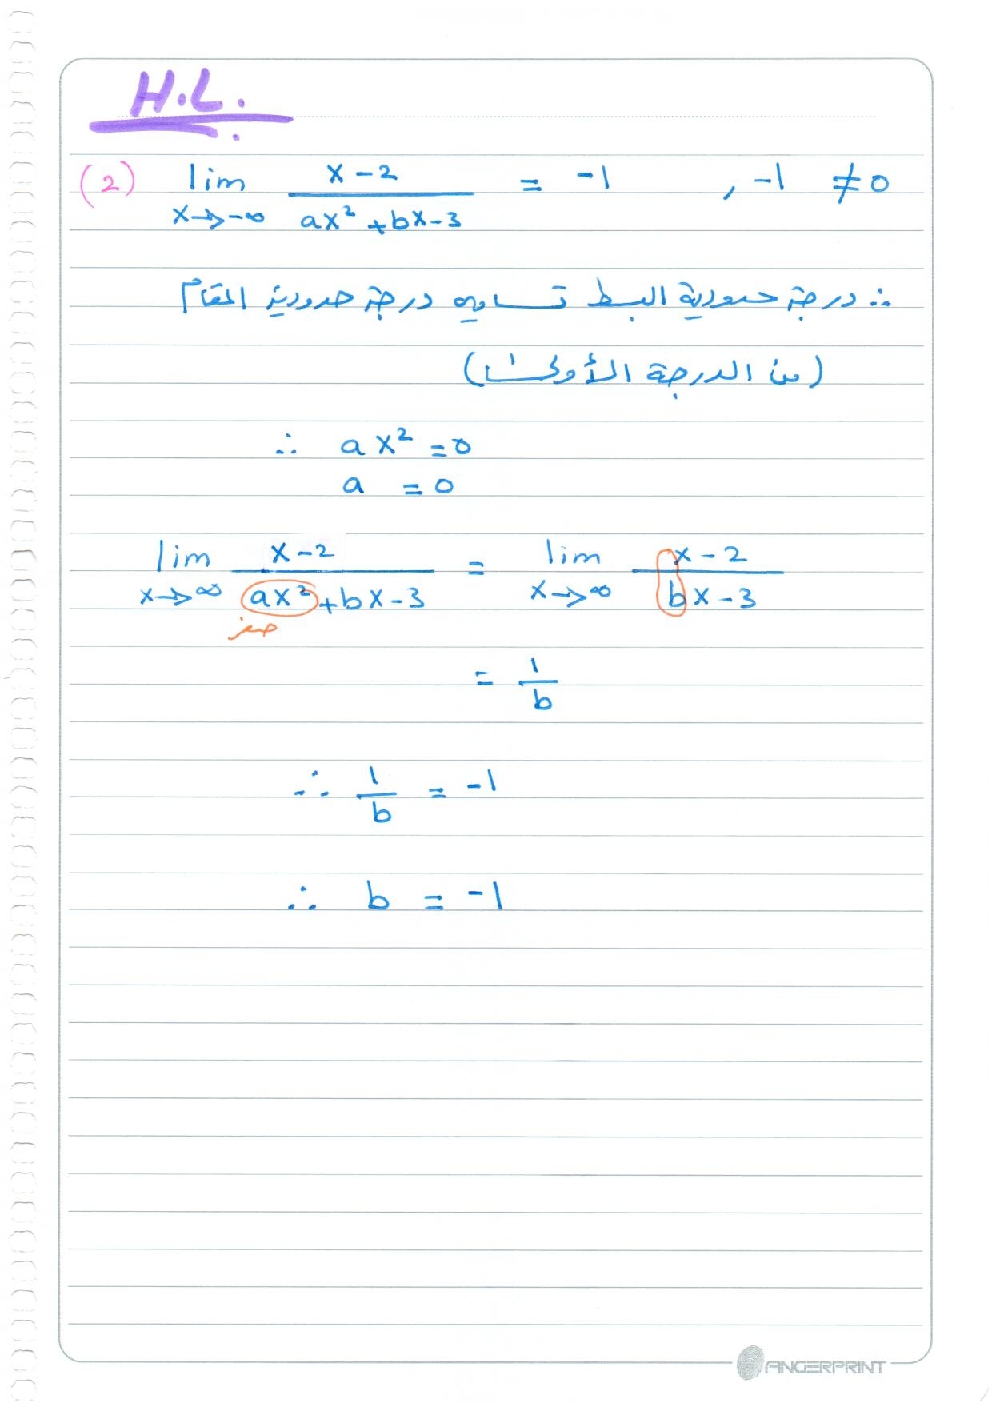 H.L.
(2) lim x→-∞ (x-2)/(ax²+bx-3) = -1 , -1 ≠ 0
∴ درجة حدودية البسط تساوي درجة حدودية المقام
(من الدرجة الأولى)
∴ ax² = 0
a = 0
lim x→∞ (x-2)/(ax²+bx-3) = lim x→∞ (x-2)/(bx-3)
صفر
= 1/b
∴ 1/b = -1
∴ b = -1
FINGERPRINT